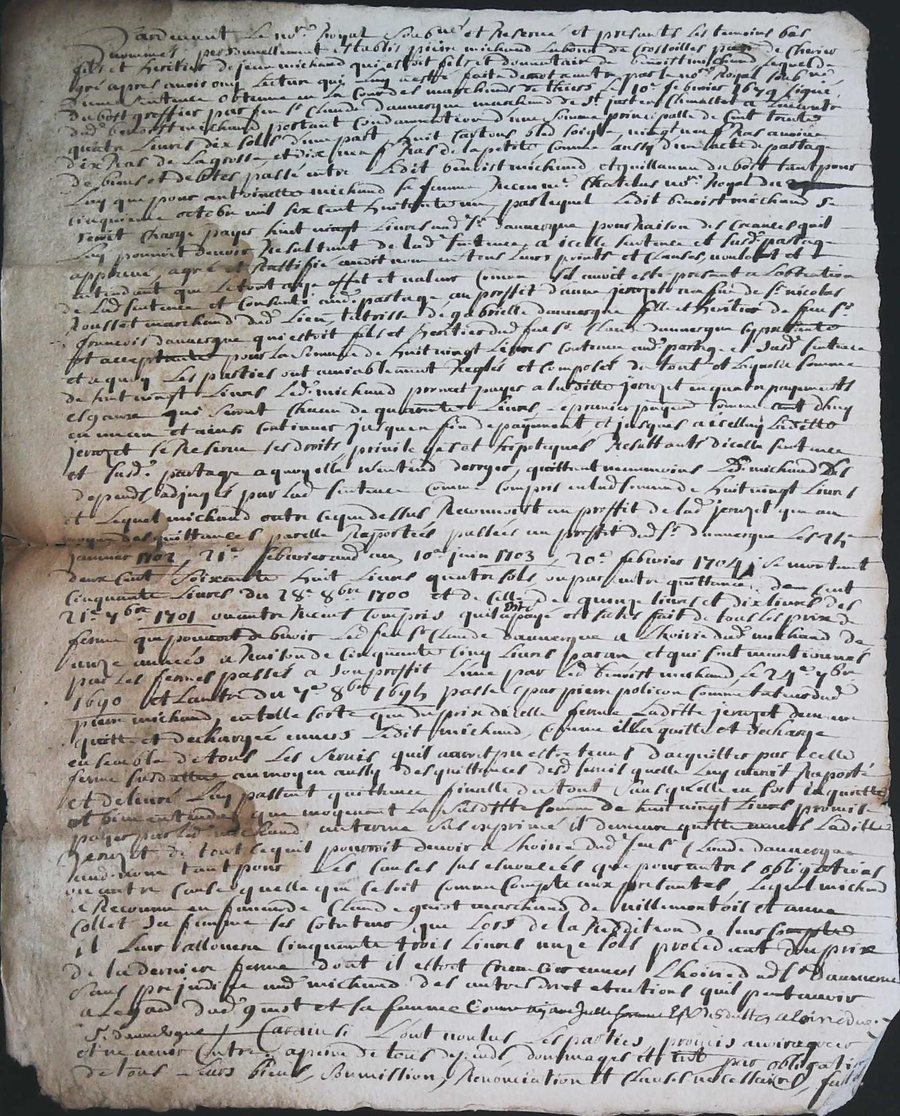 Pardevant Le no.re Royal Soub.né et Reservé et presants Les temoins bas
nommes, personnellement establis pierre michaud Laboureur de Crosoilles de Cherier
fils et heritier de jean michaud qui estoit fils et donnataire de benoist michaud Lequel de
gré apres avoir ouy Lecture qui Luy a esté faite de mot a autre par le no.re Royal soub.né
d'une sentence obtenue en la Cour des marchands de thiers Le 10.e febvrier 1679 signé
du bost greffier par feu s.r Claude dauvergne marchand de St just en Chevallet a Lencontre
dud. benoist michaud portant Condamnation d'une somme principalle de Cent trente
quatre Livres dix solls d'une part huit Cartons bled soigle, vingt neuf Ras avoine
dix Ras de La grosse et dix neuf Ras de La petite Comme aussy d'un acte de partage
de biens et debtes passé entre Ledit benoist michaud et guillaume du bost tant pour
Luy que pour antoinette michaud sa femme Chatelus no.re Royal du
cinquieme octobre mil six cent huitante un, par lequel Ledit benoist michaud se
seroit Chargé payer huit vingt Livres aud. S.r dauvergne pour Raison des Creances quil
Luy pouvoit debvoir Resultant de Lad. sentence, a icelle sentence et susd. partage
approuvé, agréé et Rattifié audit nom en tous Leurs points et Clauses voulant et
entendant que Le tout aye effet et valeur Comme sil avoit esté present a Lobtention
de Lad. sentence et Consenti aud. partage au proffit d'anne jerozet veuve de feu S.r nicolas
Rousset marchand dud. Lieu, tutrisse de gabrielle dauvergne fille et heritiere de feu S.r
francois dauvergne qui estoit fils et heritier dud. feu S.r Claude dauvergne cy presente
et acceptante pour La somme de huit vingt Livres Contenue aud. partage et susd. sentence
et a quoy Les parties ont amiablement Reglés et Composés du tout et Laquelle somme
de huit vingt Livres Led. michaud promet payer a La ditte jerozet en quatre payements
esgaux qui seront Chacun de quarante Livres, Le premier payement Comme dhuy
en un an et ainsi Continuer jusques a fin de payement et jusques a icelluy Laditte
jerozet se Reserve ses droits, privileges et hipoteques Resultants dicelle sentence
et susd. partage a quoy elle n'entend deroger, quittant neanmoins Led. michaud des
depends adjugés par Lad. sentence Comme Compris en Lad. somme de huit vingt Livres
et Lequel michaud outre ce que dessus Reconnoit au proffit de Lad. jerozet que au
moyen des quittances par elle Raportées passées au proffit dud. S.r dauvergne Les
janvier 1702, 21.e febvrier aud. an, 10.e juin 1703, 20.e febvrier 1704, se montant
deux cent soixante huit Livres quatre sols, ou par autre quittance de cent
cinquante Livres du 28.e 8bre 1700 et de celle de quinze livres et dix livres des
21.e 7bre 1701 ou autre Compris quil a payé et satisfait de tous Les prix de
ferme que pouvoit debvoir Led. feu s.r Claude dauvergne a Lhoirie dud. michaud de
onze années a Raison de Cinquante Cinq Livres par an et qui sont mentionnés
par Les fermes passés a son proffit Lune par Led. benoist michaud Le 24.e 7bre
1690 et Lautre du 7.e 8bre 1695 passée par pierre policon Comme tuteur dud.
pierre michaud, en telle sorte que du prix dicelle ferme Laditte jerozet demeure
quitte et dechargée envers Ledit michaud, Comme il len quitte et decharge
ensemble de tous Les servis quil auroit pu estre tenus dacquitter par icelle
ferme au moyen aussy des quittances desd. servis quelle Luy auroit Raporté
et delivré Luy passant quittance finalle du tout sans quelle en soit inquiettée
et bien entendu que moyenant La susditte somme de huit vingt Livres promise
payer par Led. michaud au terme sus exprimé il demeure quitte envers Laditte
jerozet de tout ce quil pourroit devoir a Lhoirie dud. feu s.r Claude dauvergne
aud. nom tant pour Les Causes sus esnoncées que pour autres obligations
ou autre Cause quelle que ce soit Comme Compte aux presantes, Lequel michaud
a Reconnu en faveur de Claude guiot marchand de villemontois et anne
Collet sa femme ses Cotuteurs, que Lors de La Reddition de leur Compte
il Leur allouera Cinquante trois Livres onze sols procedant du prix
de La derniere ferme dont il estoit Creancier envers Lhoirie dud. s.r dauvergne
sans prejudice aud. michaud des autres droits et actions quil peut avoir
a Legard dud. guiot et sa femme Comme ayant
S.r dauvergne Car ainsi L'ont voulus Les parties promis avoir agreé
et ne venir Contre a peine de tous depends, dommages et par obligation
de tous Leurs biens, soumission, Renonciation et Clauses necessaires, fait